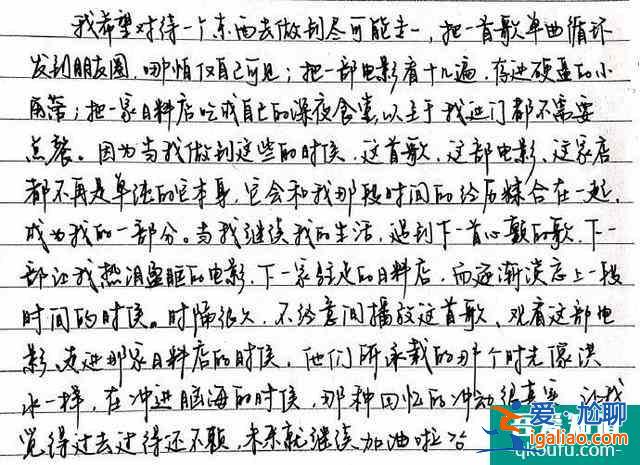 我希望对待一个东西去做到尽可能专一,把一首歌单曲循环
发到朋友圈,哪怕仅自己可见;把一部电影看十几遍,存进硬盘的小
角落;把一家日料店吃成自己的深夜食堂,以至于我进门都不需要
点餐。因为当我做到这些的时候,这首歌、这部电影、这家店
都不再是单纯的它本身,它会和我那段时间的经历糅合在一起,
成为我的一部分。当我继续我的生活,遇到下一首心颤的歌,下一
部让我热泪盈眶的电影,下一家驻足的日料店,而逐渐淡忘上一段
时间的时候。时隔很久,不经意间播放这首歌、观看这部电
影、走进那家日料店的时候,他们所承载的那个时光像洪
水一样,在冲进脑海的时候,那种回忆的冲动很真实,让我
觉得过去过得还不赖,未来就继续加油啦
爱尬聊
jgaliao.com
qkoufu.com